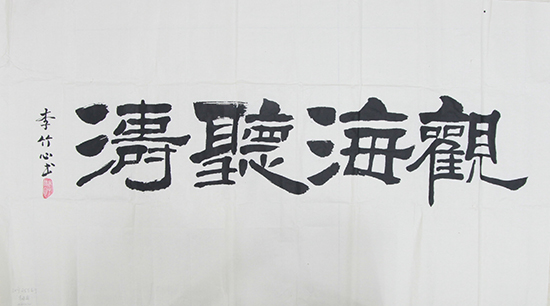 觀海聽濤
李竹心书